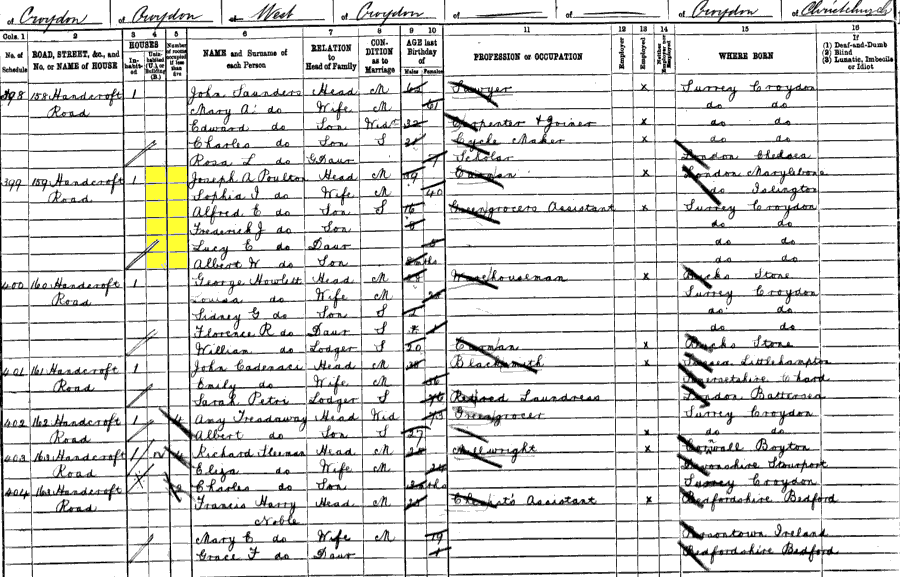 of Croydon of Croydon of West of Croydon of of of Croydon of Christchurch
Cols. 1 2 3 4 5 6 7 8 9 10 11 12 13 14 15 16
No. of Schedule ROAD, STREET, &c., and No. or NAME of HOUSE HOUSES In-habit-ed NAME and Surname of each Person RELATION to Head of Family CON-DITION as to Marriage AGE last Birthday of Males Females PROFESSION or OCCUPATION Employer Employed WHERE BORN If (1) Deaf-and-Dumb (2) Blind (3) Lunatic, Imbecile or Idiot
398 158 Handcroft 1 John Saunders Head M Sawyer x Surrey Croydon
Road Mary A. do Wife M 61 do do
Edward do Son Widr 32 Carpenter & Joiner x do do
Charles do Son S 21 Cycle Maker x do do
Rosa L do GDaur Scholar London Chelsea
399 159 Handcroft 1 Joseph A Poulton Head M 39 Carman x London Marylebone
Road Sophia I do Wife M 40 do Islington
Alfred E do Son S 16 Greengrocers Assistant x Surrey Croydon
Frederick J do Son do do
Lucy E do Daur do do
Albert W do Son mths do do
400 160 Handcroft 1 George Howlett Head M 28 Warehouseman x Bucks Stone
Road Louisa do Wife M Surrey Croydon
Sidney G do Son S do do
Florence R do Daur S do do
William do Lodger S 20 Carman x Bucks Stone
401 161 Handcroft 1 John Cadenaci Head M Blacksmith x Sussex Littlehampton
Road Emily do Wife M Somersetshire Chard
Sarah Petri Lodger S Retired Laundress London Battersea
402 162 Handcroft 1 4 Amy Treadaway Head Wid Greengrocer Surrey Croydon
Road Albert do Son S 27 x do do
403 163 Handcroft 1 4 Richard Sleeman Head M Millwright x Cornwall Boyton
Road Eliza do Wife M Devonshire Stourport
Charles do Son mths Surrey Croydon
404 163 Handcroft 2 Francis Harry Head M Chemist's Assistant x Bedfordshire Bedford
Road Noble
Mary E do Wife M 19 Ireland
Grace F do Daur Bedfordshire Bedford